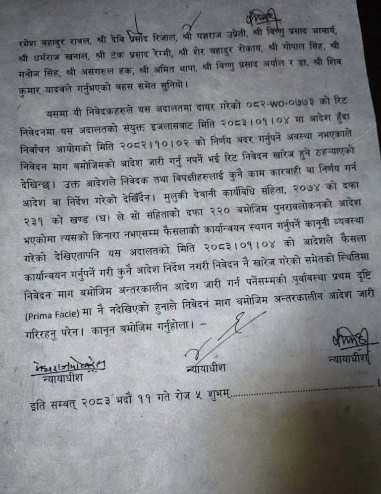 रमेश बहादुर रावल, श्री देवि प्रसाद रिजाल, श्री यज्ञराज उप्रेती, श्री विष्णु प्रसाद आचार्य,
श्री धर्मराज खनाल, श्री टंक प्रसाद रेग्मी, श्री शेर बहादुर रोकाय, श्री गोपाल सिंह, श्री
मनोज सिंह, श्री असगरुल हक, श्री अमित थापा, श्री विष्णु प्रसाद अर्याल र डा. श्री शिव
कुमार यादवले गर्नुभएको बहस समेत सुनियो।
यसमा यी निवेदकहरुले यस अदालतमा दायर गरेको ०८२-WO-०७७३ को रिट
निवेदनमा यस अदालतको संयुक्त इजलासबाट मिति २०८३।०१।०४ मा आदेश हुँदा
निर्वाचन आयोगको मिति २०८२।१०।०२ को निर्णय बदर गर्नुपर्ने अवस्था नभएकाले
निवेदन माग बमोजिमको आदेश जारी गर्नु नपर्ने भई रिट निवेदन खारेज हुने ठहऱ्याएको
देखिन्छ। उक्त आदेशले निवेदक तथा विपक्षीहरुलाई कुनै काम कारवाही वा निर्णय गर्न
आदेश वा निर्देश गरेको देखिँदैन। मुलुकी देवानी कार्यविधि संहिता, २०७४ को दफा
२३१ को खण्ड (घ) ले सो संहिताको दफा २२० बमोजिम पुनरावलोकनको आदेश
भएकोमा त्यसको किनारा नभएसम्म फैसलाको कार्यान्वयन स्थगन गर्नुपर्ने कानूनी व्यवस्था
गरेको देखिएतापनि यस अदालतको मिति २०८३।०१।०४ को आदेशले फैसला
कार्यान्वयन गर्नुपर्ने गरी कुनै आदेश निर्देश नगरी निवेदन नै खारेज गरेको समेतको स्थितिमा
निवेदन माग बमोजिम अन्तरकालीन आदेश जारी गर्न पर्नेसम्मको पूर्वावस्था प्रथम दृष्टि
(Prima Facie) मा नै नदेखिएको हुनाले निवेदन माग बमोजिम अन्तरकालीन आदेश जारी
गरिरहनु परेन। कानून बमोजिम गर्नुहोला। –
न्यायाधीश न्यायाधीश न्यायाधीश
इति सम्बत् २०८३ भदौ ११ गते रोज ५ शुभम्